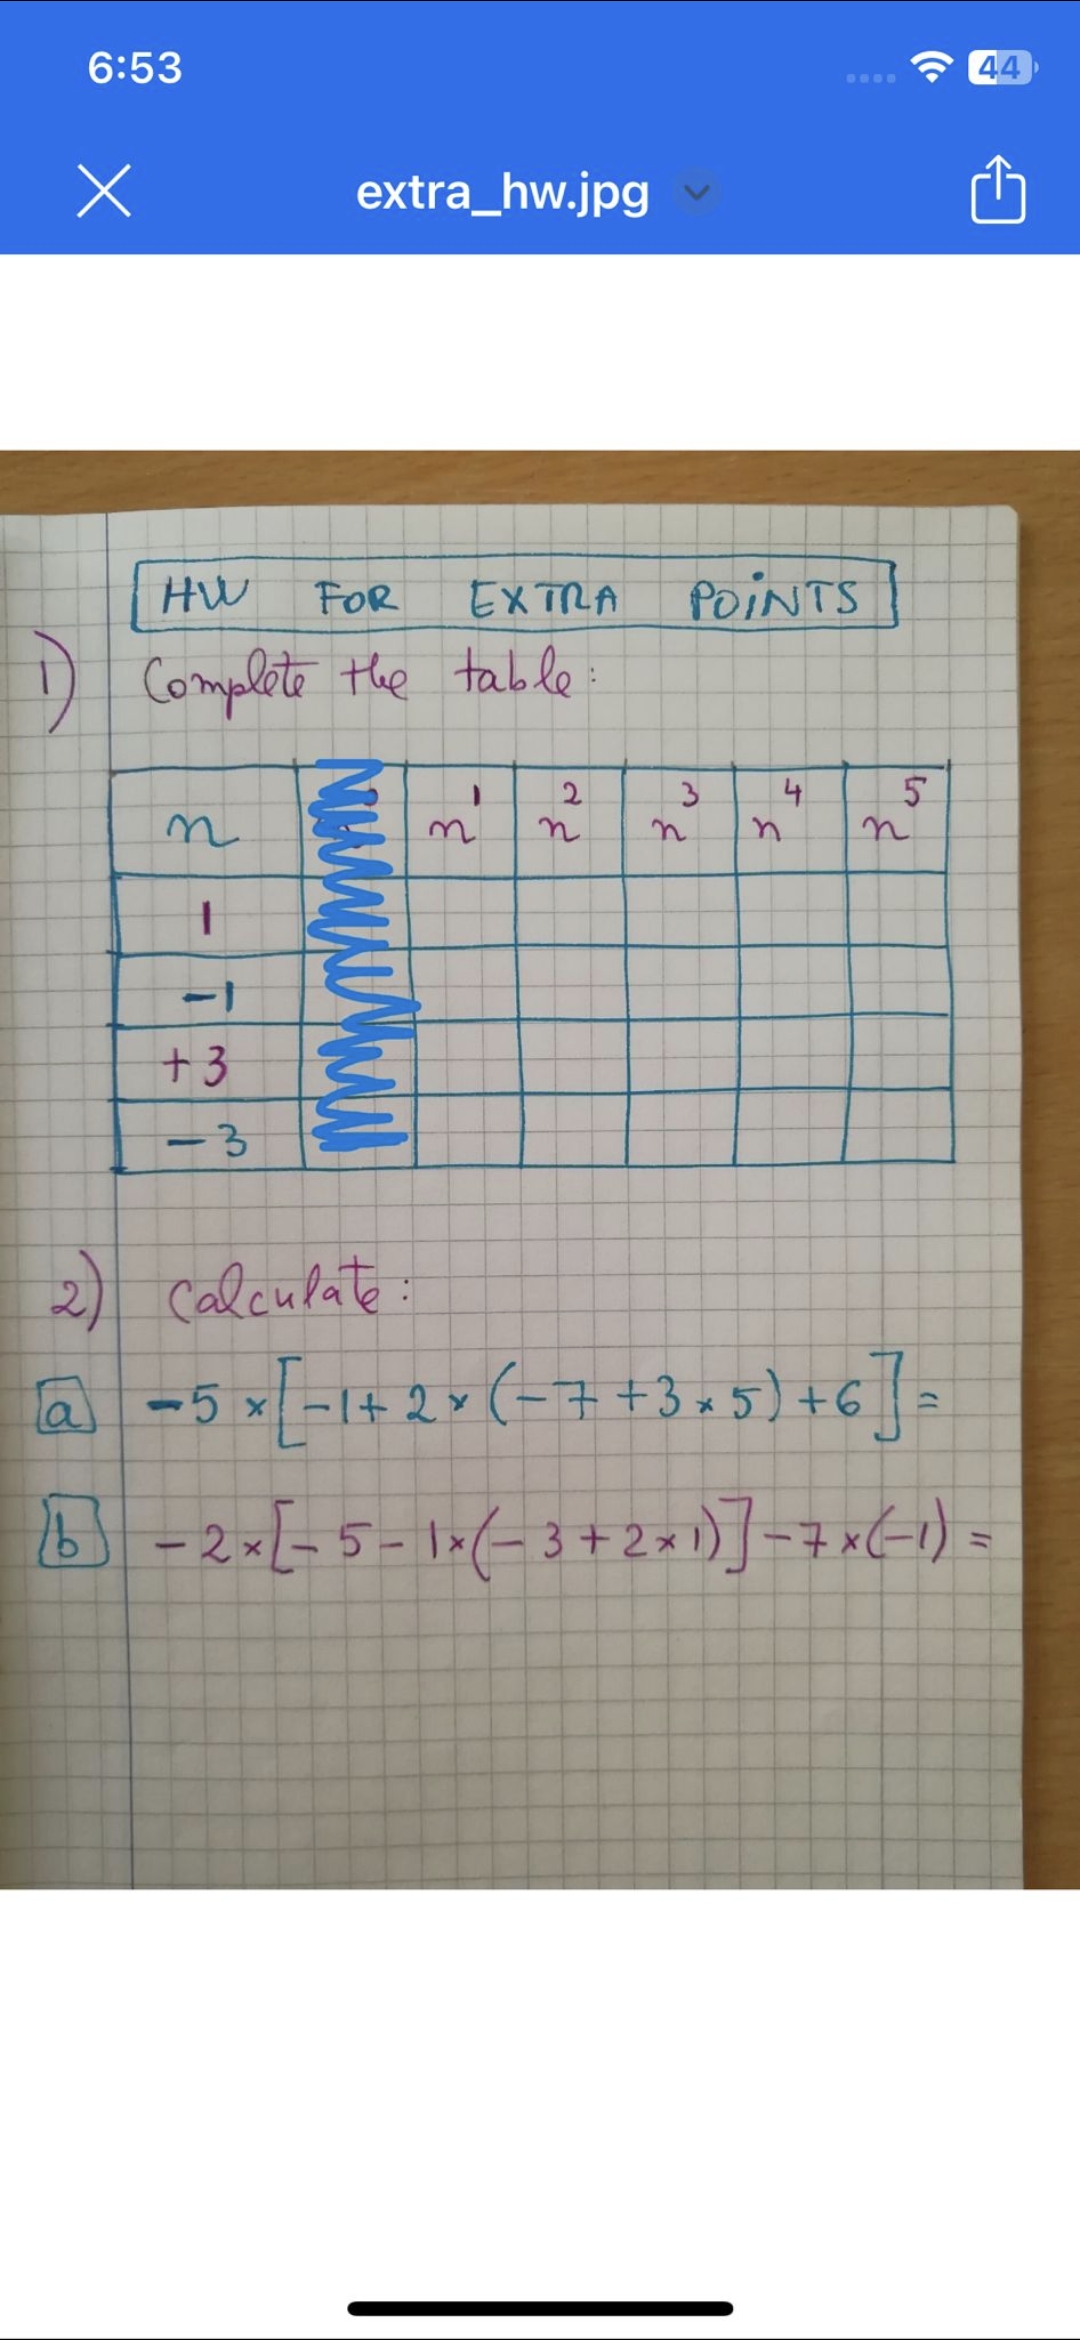 6:53
44
extra_hw.jpg
HW FOR EXTRA POINTS
1) Complete the table:
n n¹ n² n³ n⁴ n⁵
1
-1
+3
-3
2) Calculate:
a -5×[-1+2×(-7+3×5)+6]=
b -2×[-5-1×(-3+2×1)]-7×(-1)=